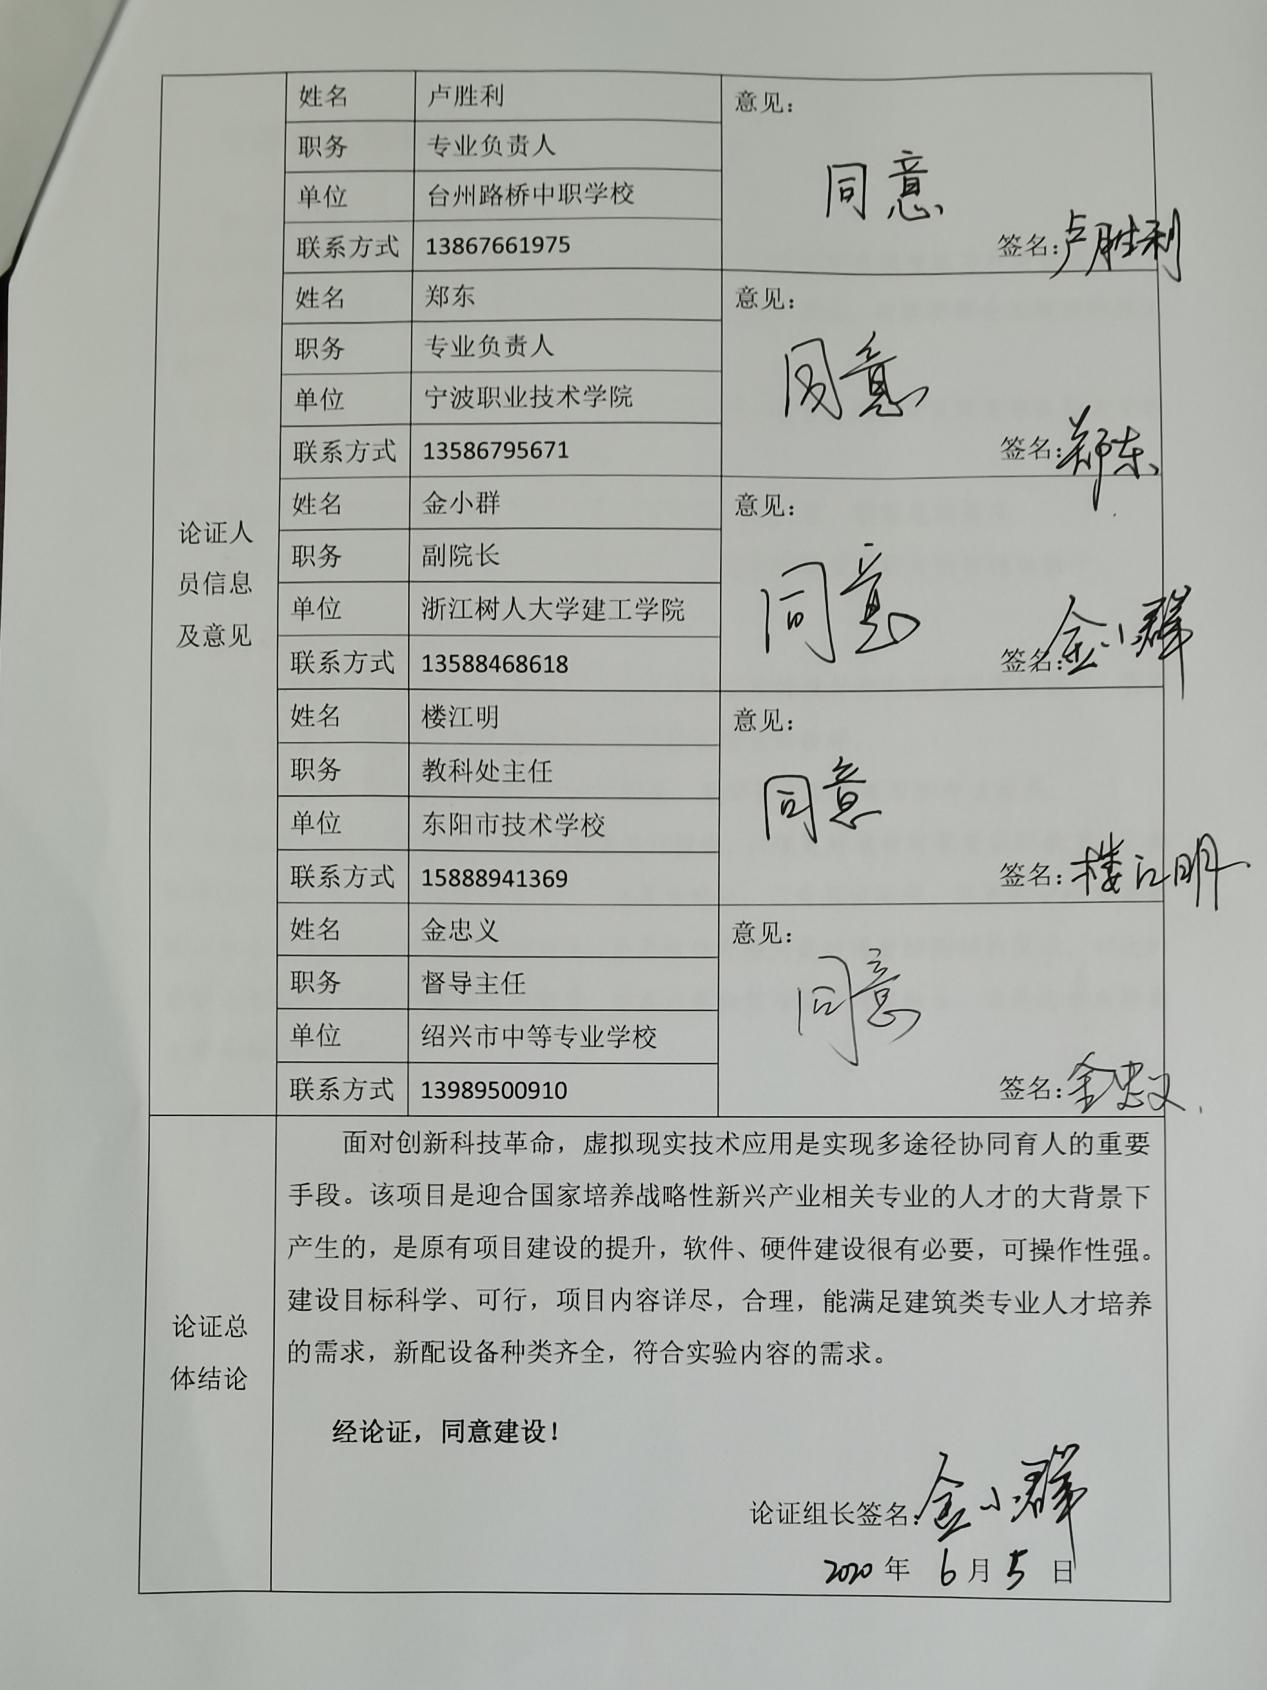 姓名 卢胜利 意见：
职务 专业负责人
同意
单位 台州路桥中职学校
联系方式 13867661975 签名：卢胜利
姓名 郑东 意见：
职务 专业负责人
同意
单位 宁波职业技术学院
联系方式 13586795671 签名：郑东
姓名 金小群 意见：
论证人
职务 副院长
员信息
同意
单位 浙江树人大学建工学院
及意见
联系方式 13588468618 签名：金小群
姓名 楼江明 意见：
职务 教科处主任
同意
单位 东阳市技术学校
联系方式 15888941369 签名：楼江明
姓名 金忠义 意见：
职务 督导主任
同意
单位 绍兴市中等专业学校
联系方式 13989500910 签名：金忠义
面对创新科技革命，虚拟现实技术应用是实现多途径协同育人的重要
手段。该项目是迎合国家培养战略性新兴产业相关专业的人才的大背景下
产生的，是原有项目建设的提升，软件、硬件建设很有必要，可操作性强。
建设目标科学、可行，项目内容详尽，合理，能满足建筑类专业人才培养
论证总
的需求，新配设备种类齐全，符合实验内容的需求。
体结论
经论证，同意建设！
论证组长签名：金小群
2020 年 6 月 5 日